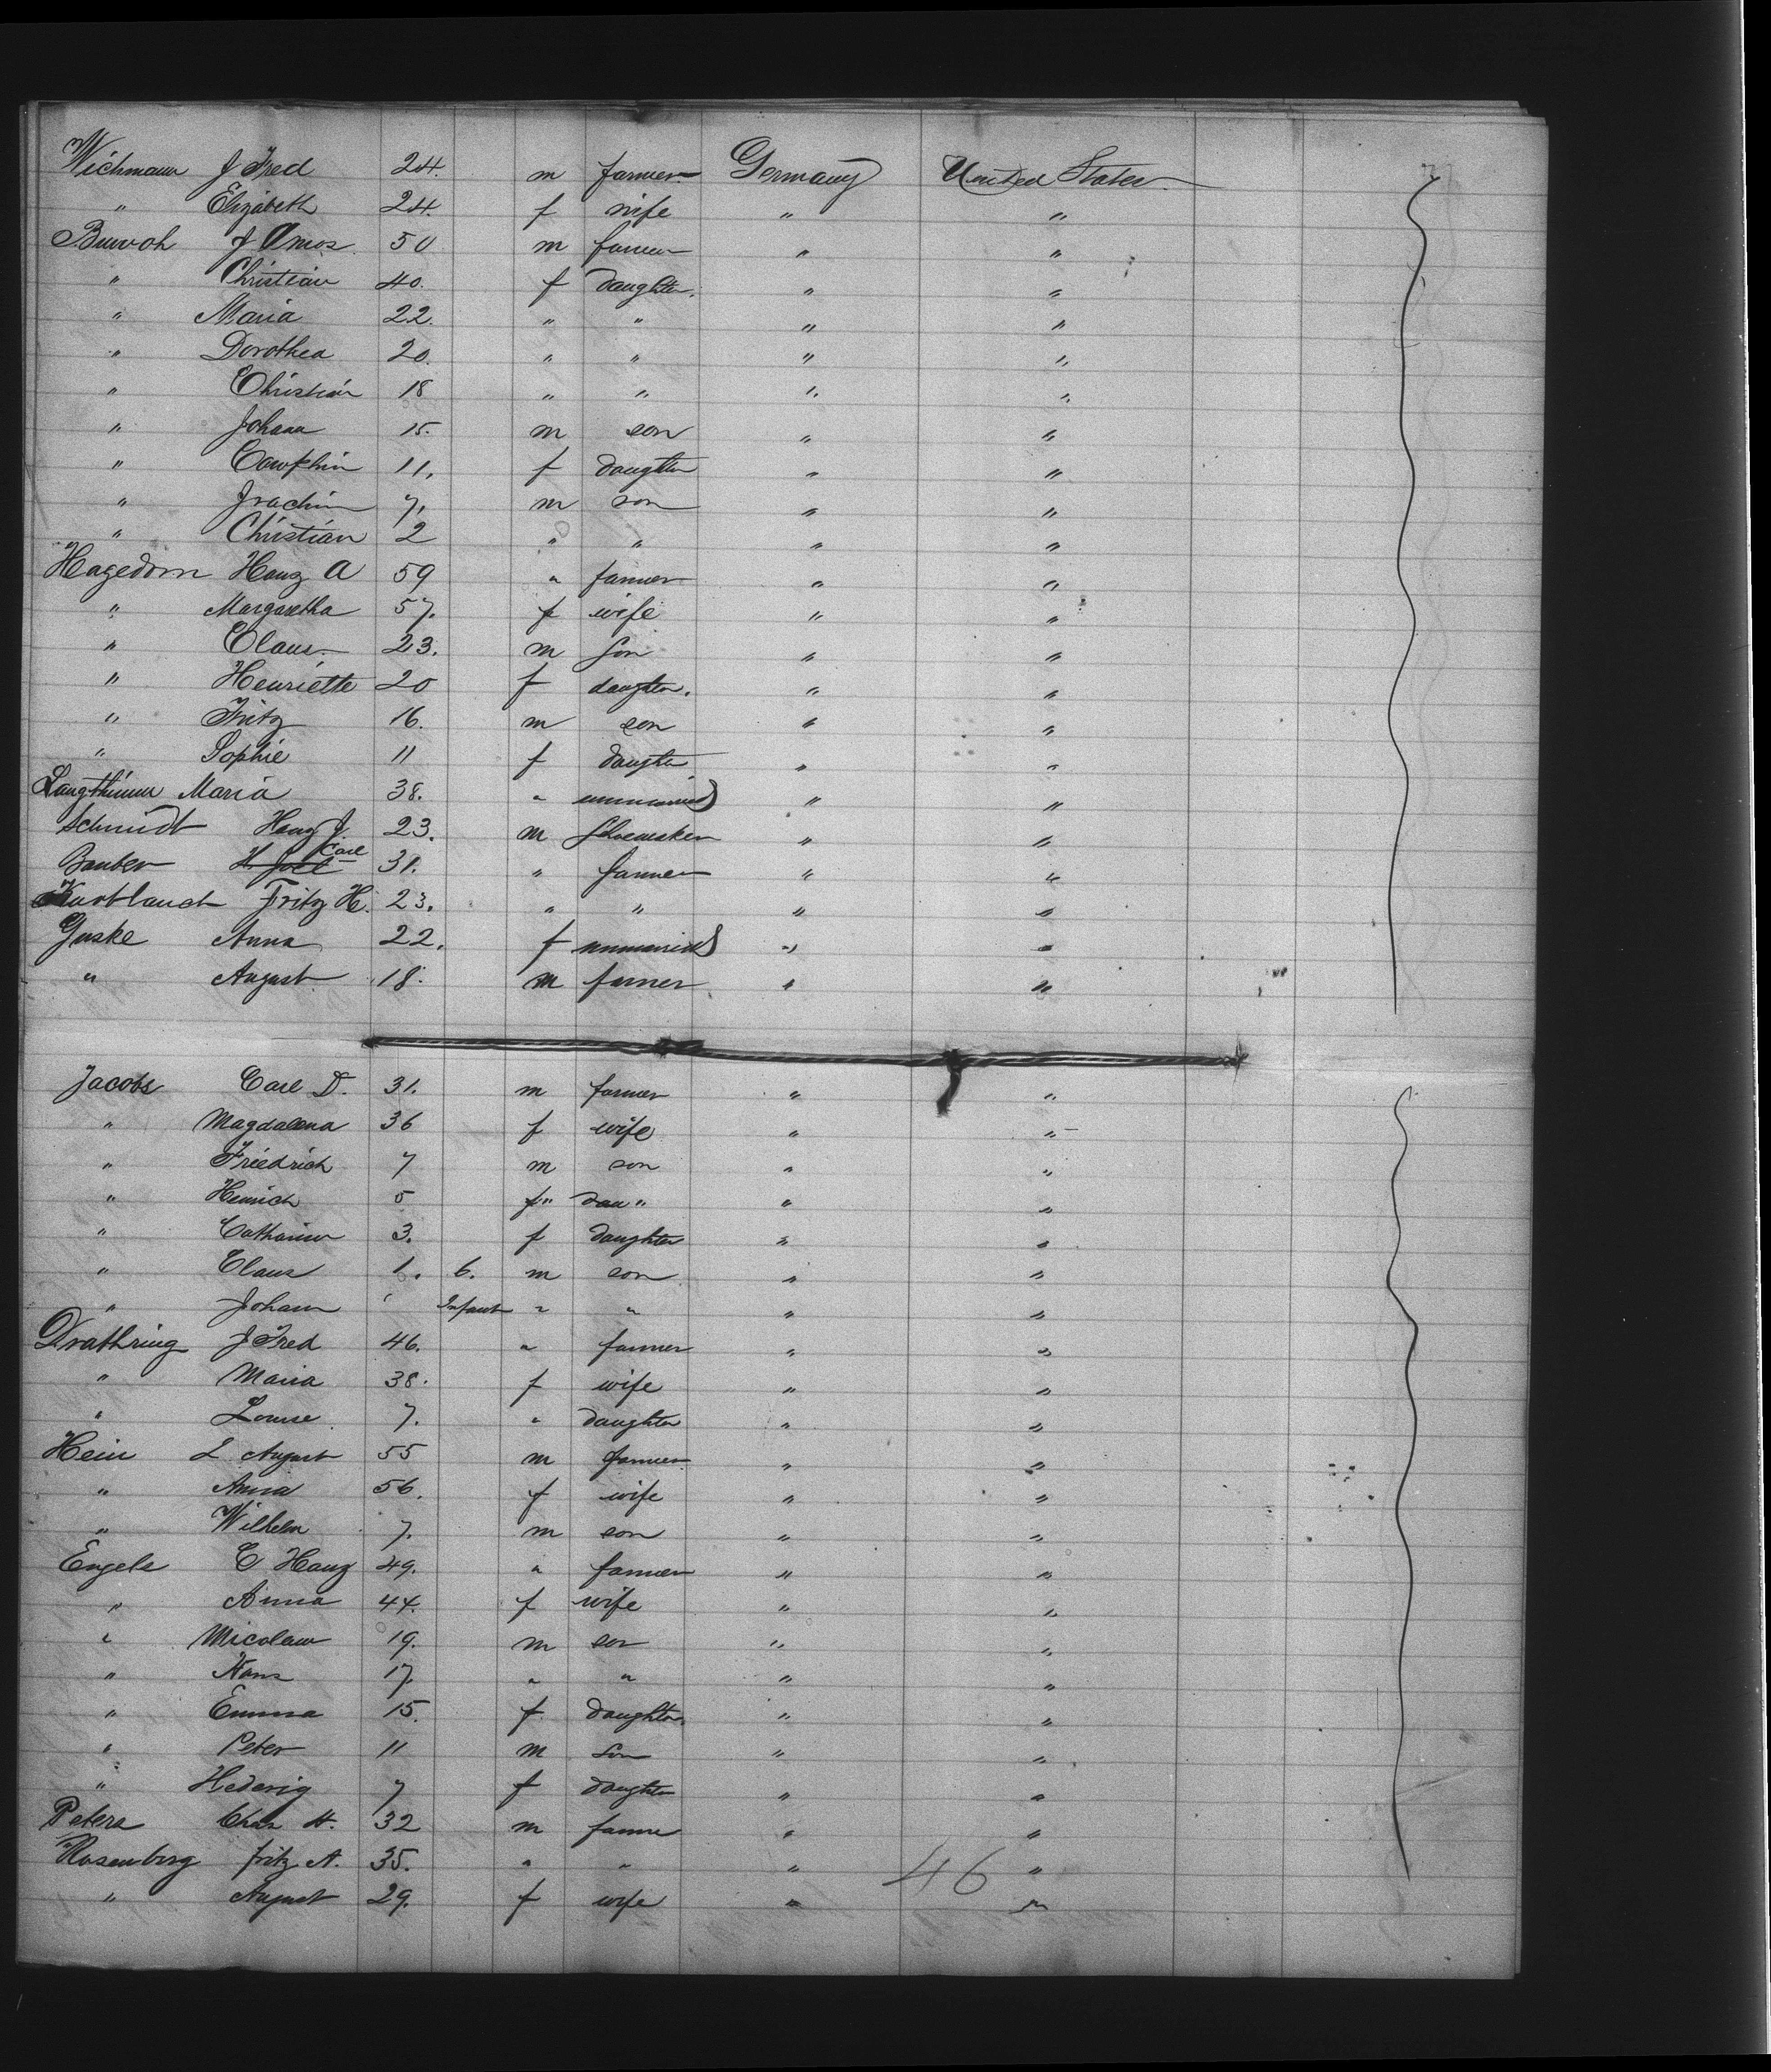 Wichmann J Fred 24. m farmer Germany United States
" Elizabeth 24. f wife " "
J Amos 50 m farmer " "
" Christian 40. f daughter. " "
" Maria 22. " " " "
" Dorothea 20. " " " "
" Christian 18 " " " "
" Johann 15. m son " "
" 11, f daughter " "
" Joachim 7, m son " "
" Christian 2 " " " "
Hagedorn Hanz A 59 " farmer " "
" Margaretha 57. f wife " "
" Claus 23. m son " "
" Henriette 20 f daughter. " "
" Fritz 16. m son " "
" Sophie 11 f daughter " "
Maria 38. " unmarried " "
Schmidt Hanz J. 23. m Shoemaker " "
H. Carl 31. " farmer " "
Fritz H. 23. " " " "
Guske Anna 22. f unmarried " "
" August 18. m farmer " "
Jacobs Carl D. 31. m farmer " "
" Magdalena 36 f wife " "
" Friedrich 7 m son " "
" Heinrich 5 " " " "
" Catharina 3. f daughter " "
" Claus 1. 6. m son " "
" Johann Infant " " " "
Drathring J Fred 46. " farmer " "
" Maria 38. f wife " "
" Louise 7. " daughter " "
Hein L August 55 m farmer " "
" Anna 56. f wife " "
" Wilhelm 7. m son " "
Engels C Hanz 49. " farmer " "
" Anna 44. f wife " "
" Nicolaus 19. m son " "
" Hans 17. " " " "
" Emma 15. f daughter " "
" Peter 11 m son " "
" Hedevig 7 f daughter " "
Peters Chas H. 32 m farmer " "
Rosenberg Fritz A. 35. " " " "
" August 29. f wife " "
46